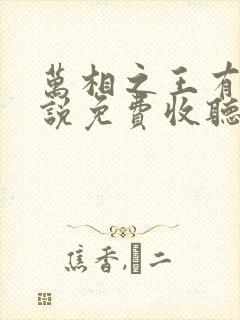 萬相之王有
說免費收聽
焦香,�二